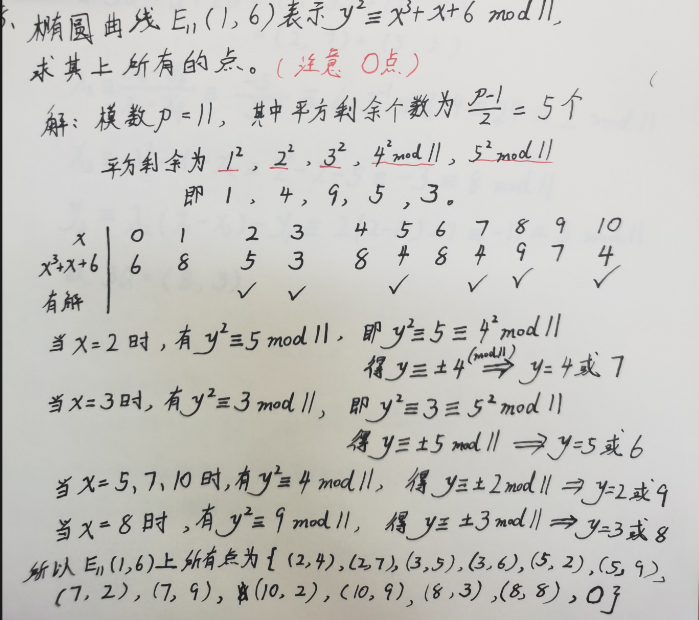 椭圆曲线 E₁₁(1,6)表示 y²≡x³+x+6 mod 11,
求其上所有的点。(注意 O点)
解: 模数p=11, 其中平方剩余个数为 (p-1)/2 = 5个
平方剩余为 1², 2², 3², 4² mod 11, 5² mod 11
即 1, 4, 9, 5, 3。
x 0 1 2 3 4 5 6 7 8 9 10
x³+x+6 6 8 5 3 8 4 8 4 9 7 4
有解 ✓ ✓ ✓ ✓ ✓ ✓
当x=2时, 有 y²≡5 mod 11, 即 y²≡5≡4² mod 11
得 y≡±4 (mod 11) ⇒ y=4或7
当x=3时, 有 y²≡3 mod 11, 即 y²≡3≡5² mod 11
得 y≡±5 mod 11 ⇒ y=5或6
当x=5、7、10时, 有 y²≡4 mod 11, 得 y≡±2 mod 11 ⇒ y=2或9
当x=8时, 有 y²≡9 mod 11, 得 y≡±3 mod 11 ⇒ y=3或8
所以 E₁₁(1,6)上所有点为{(2,4),(2,7),(3,5),(3,6),(5,2),(5,9),
(7,2),(7,9),(10,2),(10,9),(8,3),(8,8),O}